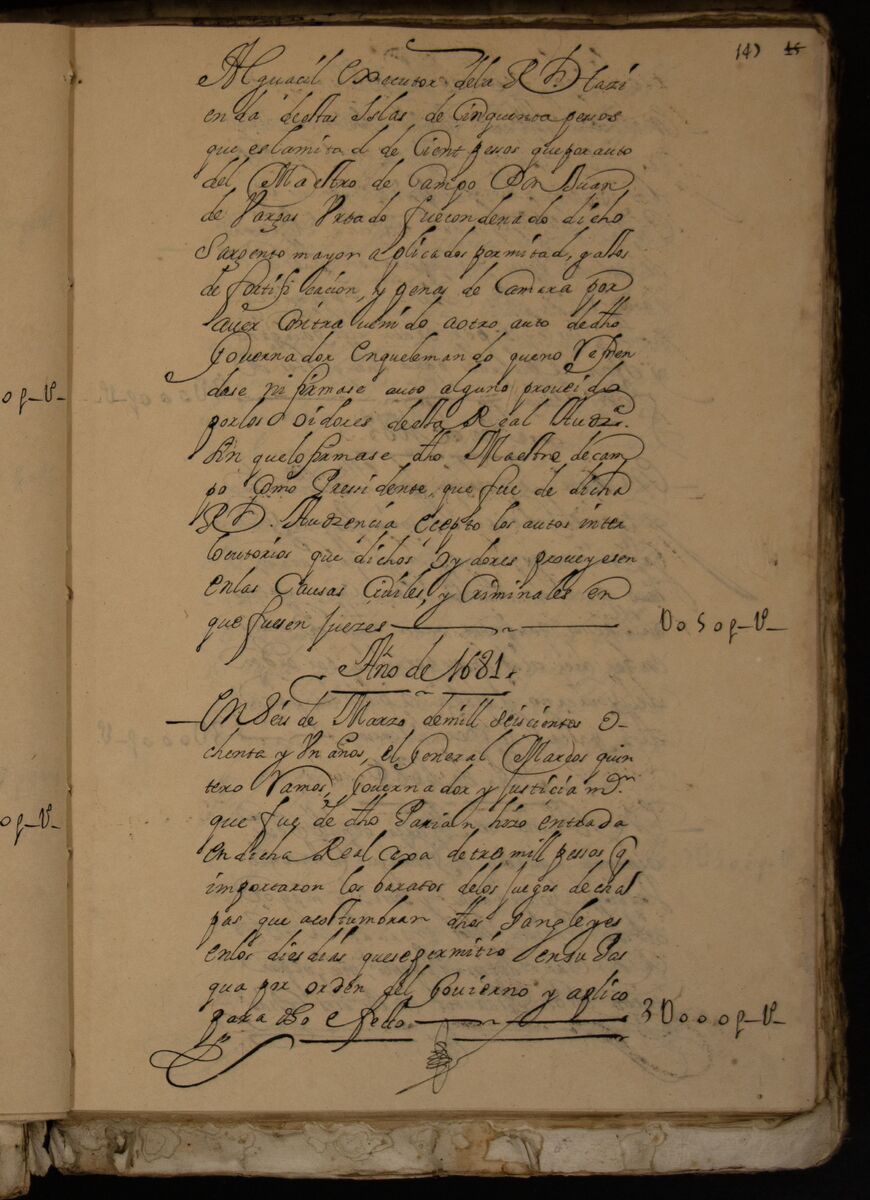 143 15
Alguacil executor dela Rl. Hazi
enda destas Islas de Cinquenta pessos
que es la mitad de Cient pessos que por auto
del Maestro de Campo Don Juan
de Vargas Vrtado fue condenado dicho
Sargento mayor aplicados por mitad, gastos
de fortificacion, y penas de Camara por
auer Contra uenido aotro auto de dho
Gouernador enquelemando queno Vefren
dase ni firmase auto alguno proueido
porlos Oidores desta Real Audza.
sin quelo firmase dho Maestre decam
po Como Pressidente, que fue de dicha
Rl. Audzencia ecepto los autos inter
locutorios que dichos oydores proueyesen
enlas Causas Ciuiles, y Criminales en
que fuesen juezes
U050p-U-
Año de 1681.
En Seis de Marzo demill seiscientos o-
chenta y Vn años, el General Marcos quin
tero Ramos, Gouernador y Justicia mor.
que fue de dho Parian hizo entrada
en dicha Real caxa de tres mill pessos q
importaron los baratos delos juegos de chal
pas que acostumbran dhos Sangleyes
enlos dies dias quesepermitio en su Pas
qua por orden del Gouierno y aplico
para dho efecto.
3U000p-U-
0p-U-
0p-U-